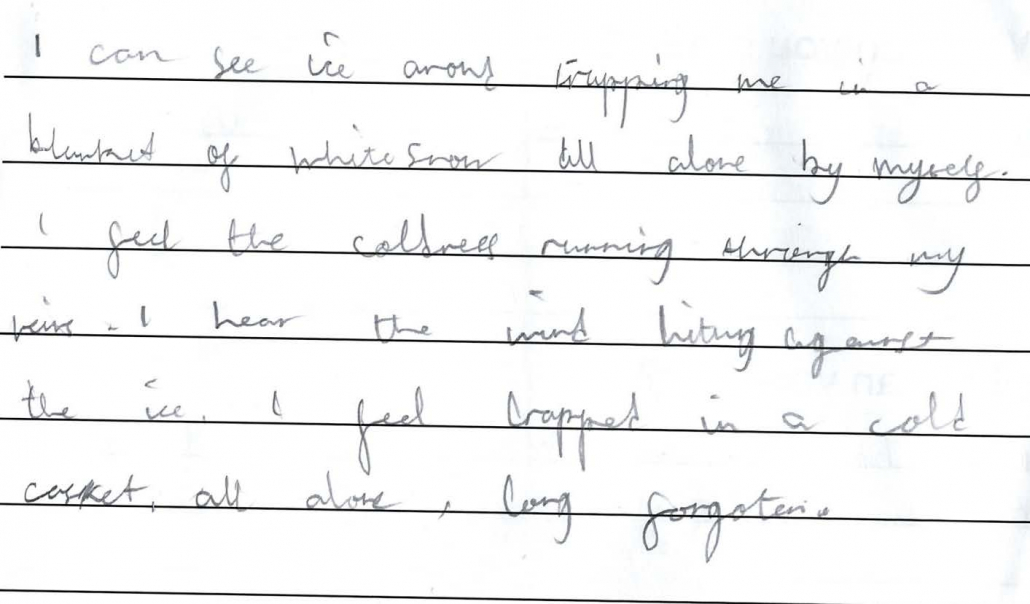 I can see ice arond trapping me in a
blanket of white snow all alone by myself.
I feel the coldness running through my
veins. I hear the wind hitng against
the ice. I feel trapped in a cold
casket, all alone, long forgoten.